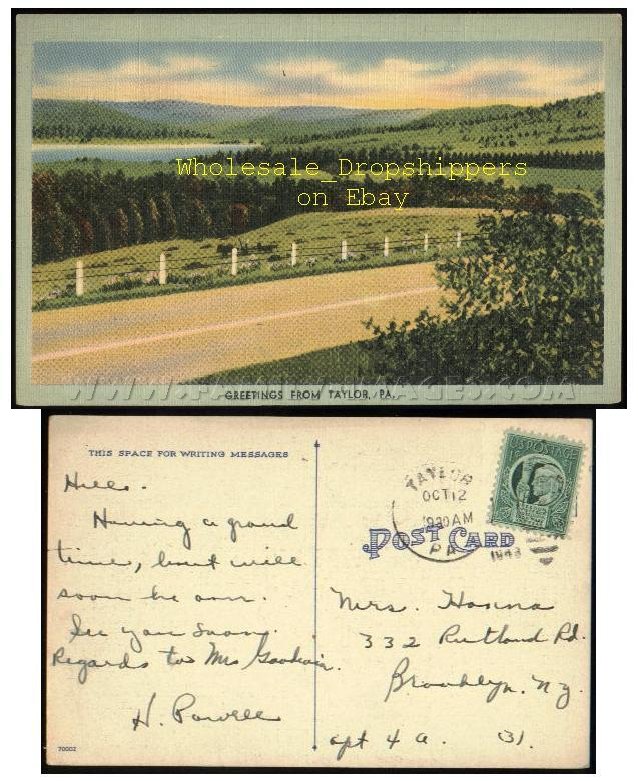 Wholesale_Dropshippers
on Ebay
GREETINGS FROM TAYLOR, PA.
THIS SPACE FOR WRITING MESSAGES
Hello.
Having a grand
time, but will
soon be
See you soon.
Regards to Mrs Goodwin.
H. Powell
70002
TAYLOR
OCT 12
930AM
PA.
1943
U.S. POSTAGE
POST CARD
Mrs. Hanna
332 Rutland Rd.
Brooklyn. N.Y.
apt 4 a. (3).